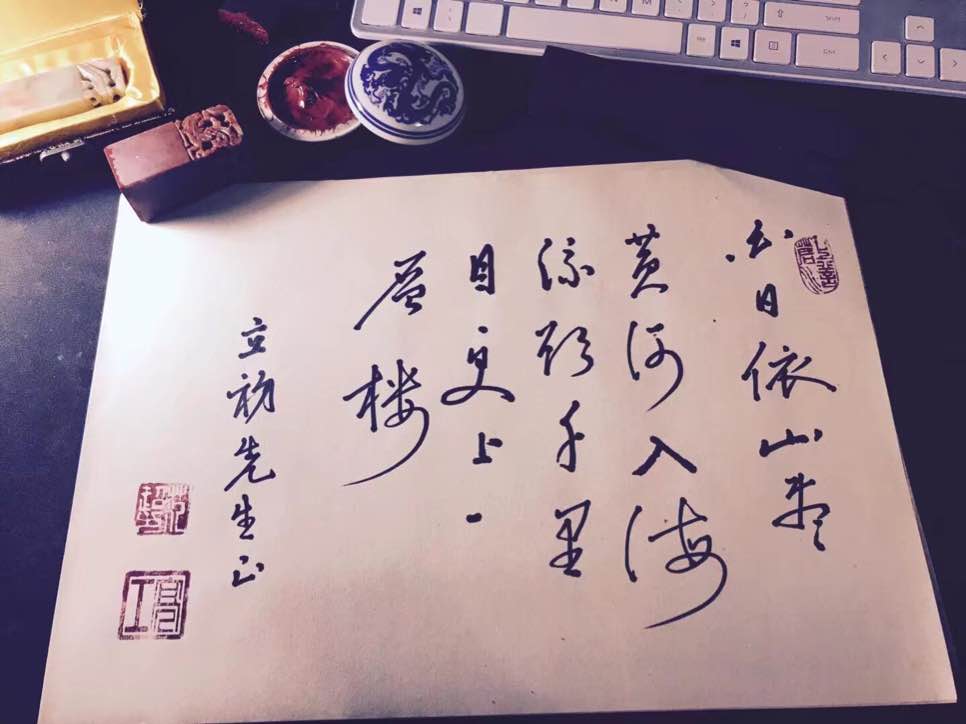 白日依山尽
黄河入海
流欲千里
目更上一
层楼
立初先生正